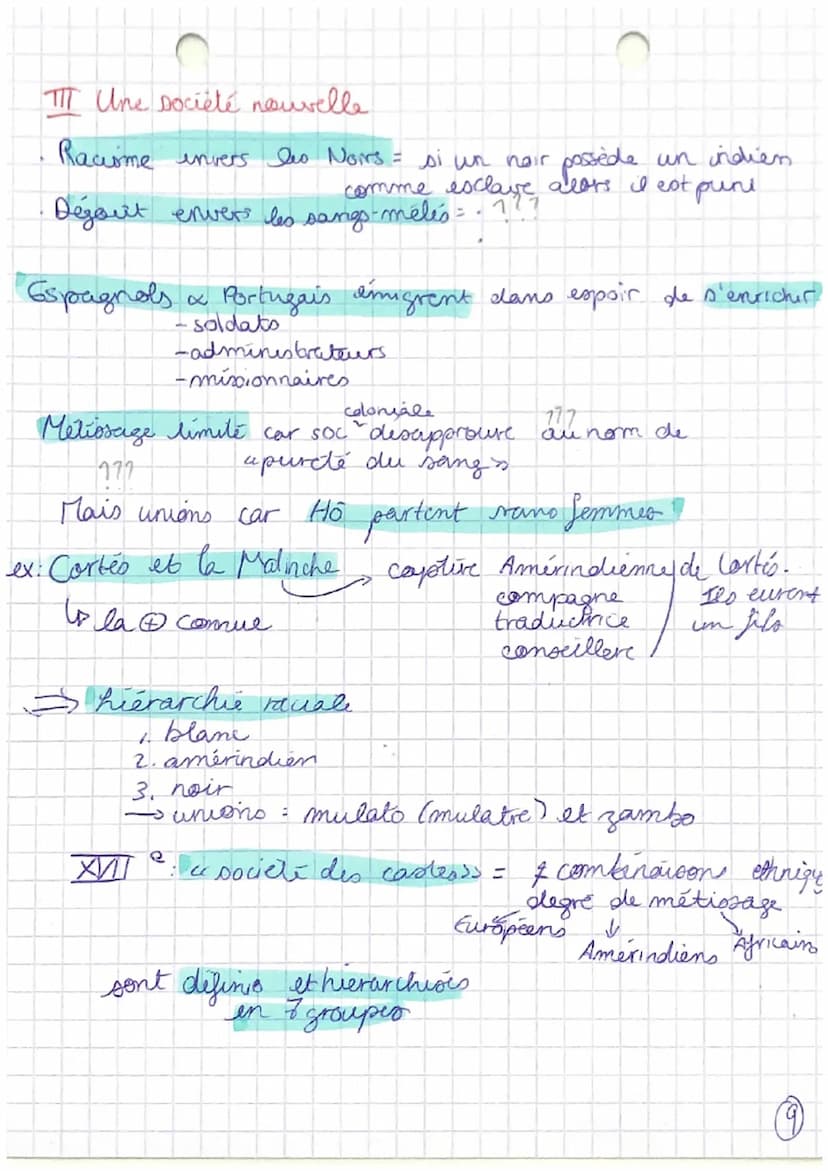 III Une société nouvelle
. Racisme envers les Noirs = si un noir possède un indien
comme esclave alors il est puni
. Dégout envers les sangs-mêlés = . ???
Espagnols & Portugais émigrent dans espoir de s'enrichir
- soldats
- administrateurs
- missionnaires
Métissage limité car soc coloniale désapprouve au nom de
???
« pureté du sang »
???
Mais unions car Hô partent sans femmes !
ex: Cortés et la Malinche → captive Amérindienne de Cortés.
compagne Ils eurent
↳ la ⊕ connue traductrice un fils
conseillère
⇒ hiérarchie raciale
1. blanc
2. amérindien
3. noir
→ unions = mulato (mulatre) et zambo
XVII e : « société des castes » = ≠ combinaisons ethniq
degré de métissage
Européens ↓ Africains
Amérindiens
sont définis et hiérarchisés
en groupes
9